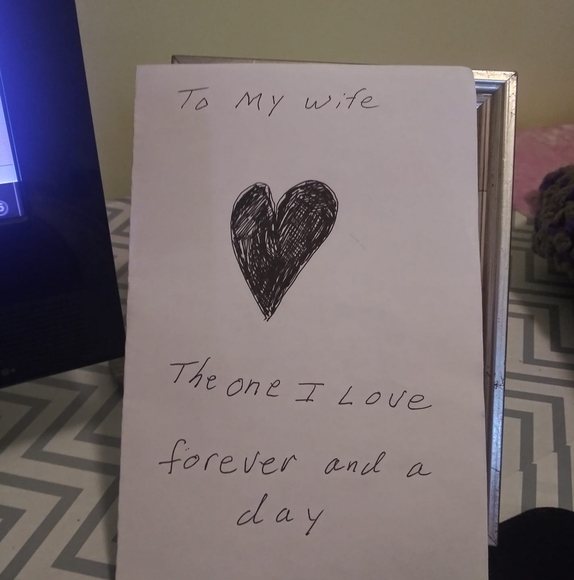 To My wife
The one I Love
forever and a
day